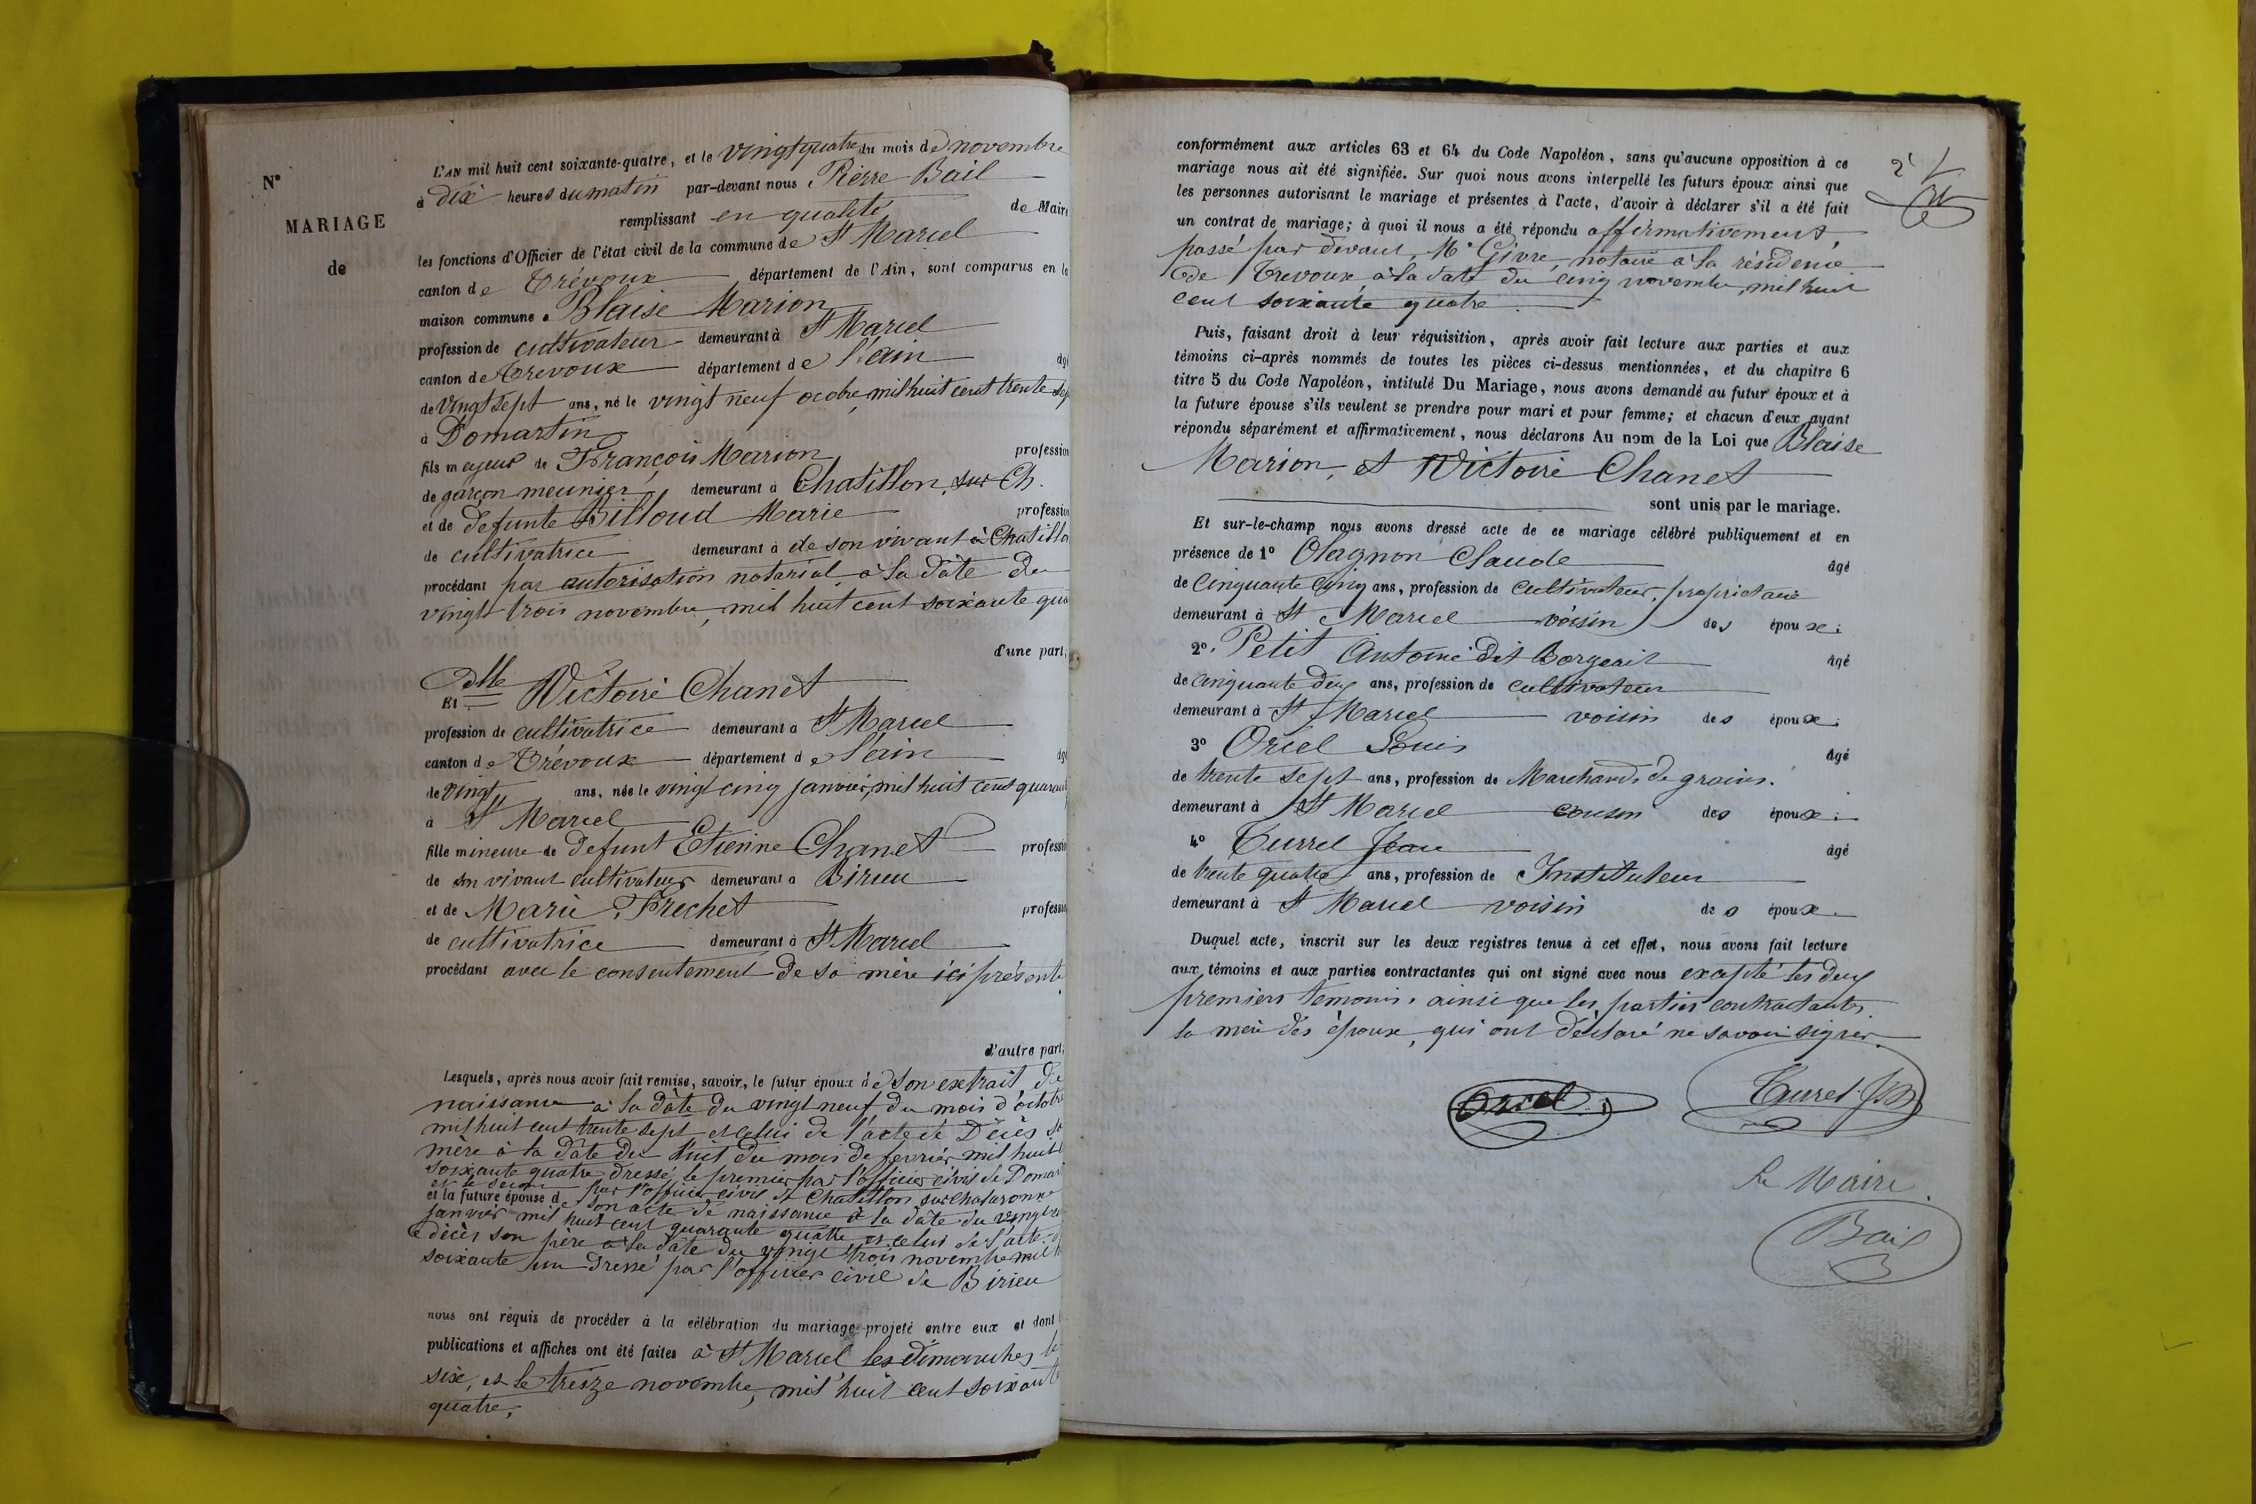 N°
MARIAGE
de
L'AN mil huit cent soixante-quatre, et le vingt quatre du mois de novembre
à dix heures du matin par-devant nous Pierre Bail
remplissant en qualité de Maire
les fonctions d'Officier de l'état civil de la commune de St Marcel
canton de Trévoux département de l'Ain, sont comparus en la
maison commune Blaise Marion
profession de cultivateur demeurant à St Marcel
canton de Trevoux département de l'ain âgé
de vingt sept ans, né le vingt neuf ocobre, mil huit cent trente sep
à Domartin
fils majeur de François Marion profession
de garçon meunier, demeurant à Chatillon, sur Ch.
et de defunte Billoud Marie profession
de cultivatrice demeurant à de son vivant à Chatillo
procédant par autorisation notarial à la date du
vingt trois novembre, mil huit cent soixante qua
d'une part;
Et Dlle Victoire Chanet
profession de cultivatrice demeurant à St Marcel
canton de Trévoux département de l'ain âgé
de vingt ans, née le vingt cinq janvier, mil huit cent quarant
à St Marcel
fille mineure de defunt Etienne Chanet profession
de son vivant cultivateur demeurant à Birieu
et de Marie Frechet profession
de cultivatrice demeurant à St Marcel
procédant avec le consentement de sa mère ici présente
d'autre part;
Lesquels, après nous avoir fait remise, savoir, le futur époux de son extrait de
naissance à la date du vingt neuf du mois d'octobre
mil huit cent trente sept et celui de l'acte de Décès sa
mère à la date du huit du mois de fevrier mil huit c
soixante quatre dressé, le premier par l'officier civil de Domar
et le deux par l'officier civil de Chatillon sur Chalaronne
et la future épouse de son acte de naissance à la date du vingt
janvier mil huit cent quarante quatre et celui de l'acte d
décès son père à la date du vingt trois novembre mil h
soixante un dressé par l'officier civil de Birieu
nous ont requis de procéder à la célébration du mariage projeté entre eux et dont
publications et affiches ont été faites à St Marcel les dimanches le
six, et le treize novembre, mil huit cent soixante
quatre,
conformément aux articles 63 et 64 du Code Napoléon, sans qu'aucune opposition à ce
mariage nous ait été signifiée. Sur quoi nous avons interpellé les futurs époux ainsi que
les personnes autorisant le mariage et présentes à l'acte, d'avoir à déclarer s'il a été fait
un contrat de mariage; à quoi il nous a été répondu affirmativement,
passé par devant, Me Givre, notaire à la résidence
de Trevoux, à la date du cinq novembre, mil huit
cent soixante quatre.
Puis, faisant droit à leur réquisition, après avoir fait lecture aux parties et aux
témoins ci-après nommés de toutes les pièces ci-dessus mentionnées, et du chapitre 6
titre 5 du Code Napoléon, intitulé Du Mariage, nous avons demandé au futur époux et à
la future épouse s'ils veulent se prendre pour mari et pour femme; et chacun d'eux ayant
répondu séparément et affirmativement, nous déclarons Au nom de la Loi que Blaise
Marion, et Victoire Chanet
sont unis par le mariage.
Et sur-le-champ nous avons dressé acte de ce mariage célébré publiquement et en
présence de 1° Olagnon Claude âgé
de Cinquante Cinq ans, profession de cultivateur, propriétaire
demeurant à St Marcel voisin des époux.
2° Petit Antoine dit Borgeais âgé
de cinquante deux ans, profession de cultivateur
demeurant à St Marcel voisin des époux.
3° Orcel Louis âgé
de trente sept ans, profession de Marchand de grains.
demeurant à St Marcel cousin des époux.
4° Turrel Jean âgé
de trente quatre ans, profession de Instituteur
demeurant à St Marcel voisin des époux.
Duquel acte, inscrit sur les deux registres tenus à cet effet, nous avons fait lecture
aux témoins et aux parties contractantes qui ont signé avec nous excepté les deux
premiers temoins, ainsi que les parties contractantes.
la mère des époux, qui ont déclaré ne savoir signer.
Orcel
Turrel Jn
Le Maire.
Bail